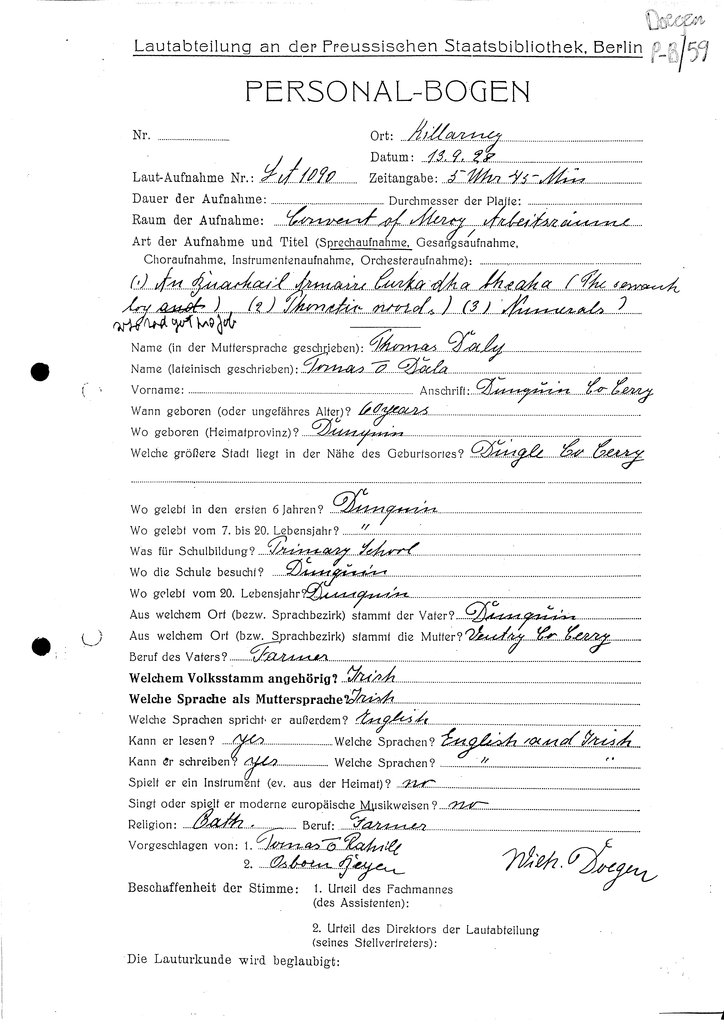 Doegen
P-B/59
Lautabteilung an der Preussischen Staatsbibliothek, Berlin
PERSONAL-BOGEN
Nr. Ort: Killarney
Datum: 13.9.28
Laut-Aufnahme Nr.: LA 1090 Zeitangabe: 5 Uhr 45 Min
Dauer der Aufnahme: Durchmesser der Platte:
Raum der Aufnahme: Convent of Mercy, Arbeitsräume
Art der Aufnahme und Titel (Sprechaufnahme, Gesangsaufnahme,
Choraufnahme, Instrumentenaufnahme, Orchesteraufnahme):
(1) An (The servant
boy ) (2) Phonetic word.) (3) Numerals)
who had got no job
Name (in der Muttersprache geschrieben): Thomas Daly
Name (lateinisch geschrieben): Tomas O Dala
Vorname: Anschrift: Dunquin Co Cerry
Wann geboren (oder ungefähres Alter)? 60 years
Wo geboren (Heimatprovinz)? Dunquin
Welche größere Stadt liegt in der Nähe des Geburtsortes? Dingle Co Cerry
Wo gelebt in den ersten 6 Jahren? Dunquin
Wo gelebt vom 7. bis 20. Lebensjahr? "
Was für Schulbildung? Primary School
Wo die Schule besucht? Dunquin
Wo gelebt vom 20. Lebensjahr? Dunquin
Aus welchem Ort (bezw. Sprachbezirk) stammt der Vater? Dunquin
Aus welchem Ort (bzw. Sprachbezirk) stammt die Mutter? Ventry Co Cerry
Beruf des Vaters? Farmer
Welchem Volksstamm angehörig? Irish
Welche Sprache als Muttersprache? Irish
Welche Sprachen spricht er außerdem? English
Kann er lesen? yes Welche Sprachen? English and Irish
Kann er schreiben? yes Welche Sprachen? " "
Spielt er ein Instrument (ev. aus der Heimat)? no
Singt oder spielt er moderne europäische Musikweisen? no
Religion: Cath. Beruf: Farmer
Vorgeschlagen von: 1. Tomas O Rahill
2. Osborn Wilh. Doegen
Beschaffenheit der Stimme: 1. Urteil des Fachmannes
(des Assistenten):
2. Urteil des Direktors der Lautabteilung
(seines Stellvertreters):
Die Lauturkunde wird beglaubigt: